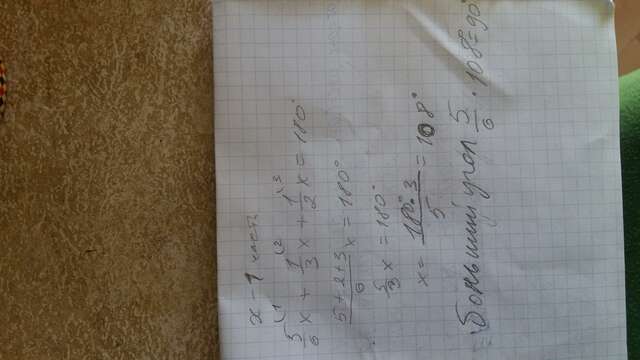 x - 1 часть
5/6 x + 1/3 x + 1/2 x = 180°
(5+2+3)/6 x = 180°
5/3 x = 180°
x = (180°·3)/5 = 108°
Больший угол 5/6 · 108° = 90°